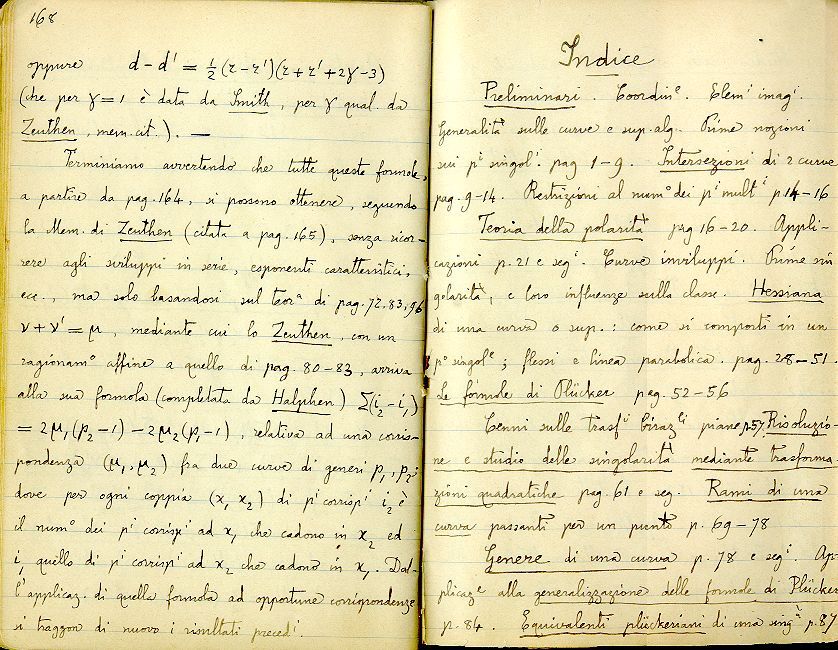 168
oppure d-d' = ½(r-r')(r+r'+2γ-3)
(che per γ=1 è data da Smith, per γ qual. da
Zeuthen, mem. cit.). —
Terminiamo avvertendo che tutte queste formole,
a partire da pag. 164, si possono ottenere, seguendo
la Mem. di Zeuthen (citata a pag. 165), senza ricor-
rere agli sviluppi in serie, esponenti caratteristici,
ecc., ma solo basandosi sul teorª di pag. 72, 83, 96
ν+ν'=μ, mediante cui lo Zeuthen, con un
ragionamº affine a quello di pag. 80-83, arriva
alla sua formola (completata da Halphen) Σ(i₂-i₁)
= 2μ₁(p₂-1) - 2μ₂(p₁-1), relativa ad una corris-
pondenza (μ₁, μ₂) fra due curve di generi p₁, p₂;
dove per ogni coppia (x₁ x₂) di pⁱ corrispⁱ i₂ è
il numº dei pⁱ corrispⁱ ad x₁ che cadono in x₂ ed
i₁ quello di pⁱ corrispⁱ ad x₂ che cadono in x₁. Dal-
l'applicaz. di quella formola ad opportune corrispondenze
si traggon di nuovo i risultati precedⁱ.
Indice
Preliminari. Coordinᵉ. Elemⁱ imagⁱ.
Generalità sulle curve e sup. alg. Prime nozioni
sui pⁱ singolⁱ. pag 1-9. Intersezioni di 2 curve
pag. 9-14. Restrizioni al numº dei pⁱ multⁱ p. 14-16
Teoria della polarità pag 16-20. Appli-
cazioni p. 21 e segⁱ. Curve inviluppi. Prime sin
golarità, e loro influenze sulla classe. Hessiana
di una curva o sup.: come si comporti in un
pº singolᵉ; flessi e linea parabolica. pag. 28-51.
Le formole di Plücker pag. 52-56
Cenni sulle trasfⁱ birazˡⁱ piane p. 57 Risoluzio-
ne e studio delle singolarità mediante trasforma-
zioni quadratiche pag. 61 e seg. Rami di una
curva passanti per un punto p. 69-78
Genere di una curva p. 78 e segⁱ. Ap-
plicazᵉ alla generalizzazione delle formole di Plücker
p. 84. Equivalenti plückeriani di una singᵃ p. 87